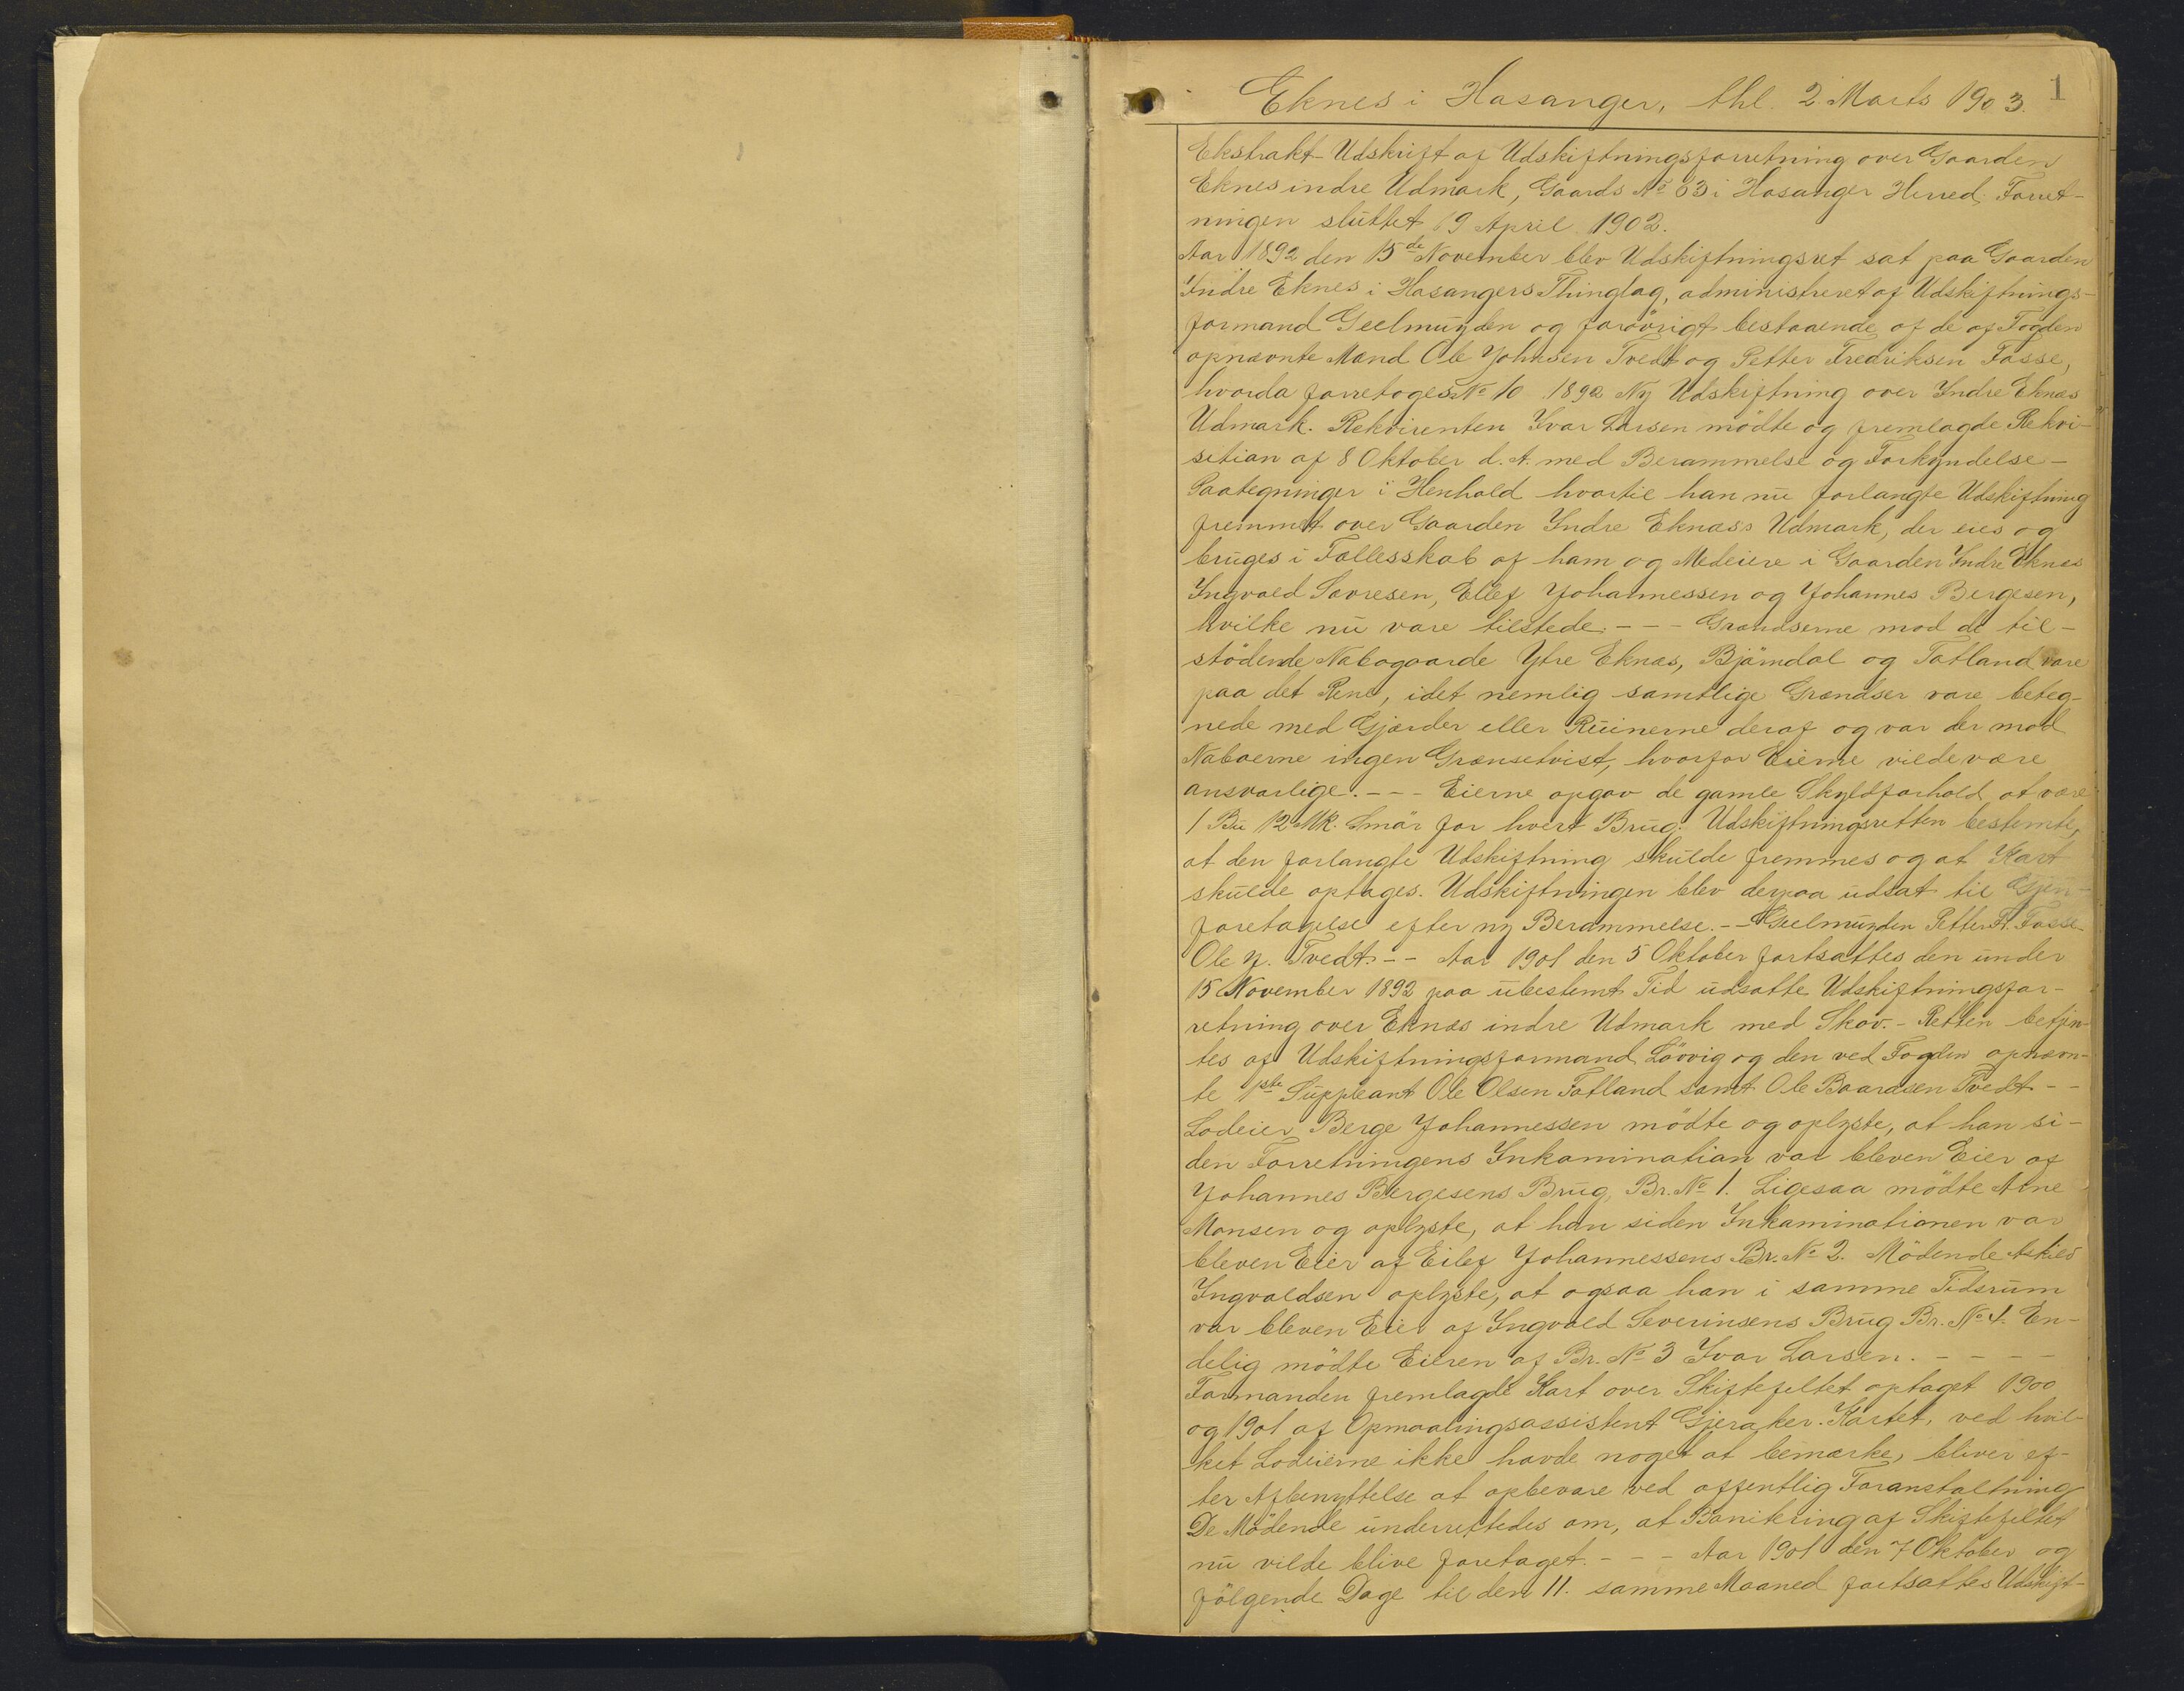 Eknes i Hosanger, thl. 2. Marts 1903. 1
Ekstrakt-Udskrift af Udskiftningsforretning over Gaarden
Eknes indre Udmark, Gaards No 63 i Hosanger Herred. Forret-
ningen sluttet 19 April 1902.
Aar 1892 den 15de November blev Udskiftningsret sat paa Gaarden
Indre Eknes i Hosangers Thinglag, administreret af Udskiftnings-
formand Geelmuyden og forøvrigt bestaaende af de af Fogden
opnævnte Mænd Ole Johnsen Tvedt og Petter Fredriksen Fosse,
hvorda forretoges No 10 1892 Ny Udskiftning over Indre Eknæs
Udmark. Rekvirenten Ivar Larsen mödte og fremlagde Rekvi-
sition af 8 Oktober d. A. med Berammelse og Forkyndelse-
Paategninger i Henhold hvortil han nu forlangte Udskiftning
fremmet over Gaarden Indre Eknæss Udmark, der eies og
bruges i Fællesskab af ham og Medeiere i Gaarden Indre Eknæs
Ingvald Sævresen, Ellef Johannessen og Johannes Bergesen,
hvilke nu vare tilstede. - - - Grændserne mod de til-
stödende Nabogaarde Ytre Eknæs, Bjørndal og Totland vare
paa det Rene, idet nemlig samtlige Grændser vare beteg-
nede med Gjærder eller Ruinerne deraf og var der mod
Naboerne ingen Grænsetvist, hvorfor Eierne vilde være
ansvarlige. - - - Eierne opgav de gamle Skyldforhold at være
1 Bu 12 Mk. Smör for hvert Brug. Udskiftningsretten bestemte,
at den forlangte Udskiftning skulde fremmes og at Kart
skulde optages. Udskiftningen blev derpaa udsat til Gjen-
foretagelse efter ny Berammelse. - - Geelmuyden Petter Fr. Fosse
Ole J. Tvedt. - - Aar 1901 den 5 Oktober fortsattes den under
15 November 1892 paa ubestemt Tid udsatte Udskiftningsfor-
retning over Eknæs indre Udmark med Skov. - Retten betjen-
tes af Udskiftningsformand Lövvig og den ved Fogden opnævn-
te 1ste Suppleant Ole Olsen Totland samt Ole Baardsen Tvedt - -
Lodeier Berge Johannessen mödte og oplyste, at han si-
den Forretningens Inkamination var bleven Eier af
Johannes Bergesens Brug, Br. No 1. Ligesaa mödte Arne
Monsen og oplyste, at han siden Inkaminationen var
bleven Eier af Eilef Johannessens Br. No 2. Mödende Askild
Ingvaldsen oplyste, at ogsaa han i samme Tidsrum
var bleven Eier af Ingvald Severinsens Brug Br. No 4. En-
delig mödte Eieren af Br. No 3 Ivar Larsen. - - - -
Formanden fremlagde Kart over Skiftefeltet optaget 1900
og 1901 af Opmaalingsassistent Gjeraker. Kartet, ved hvil-
ket Lodeierne ikke havde noget at bemærke, bliver ef-
ter Afbenyttelse at opbevare ved offentlig Foranstaltning
De Mödende underrettedes om, at Bonitering af Skiftefeltet
nu vilde blive foretaget. - - - Aar 1901 den 7 Oktober og
fölgende Dage til den 11. samme Maaned fortsattes Udskift-